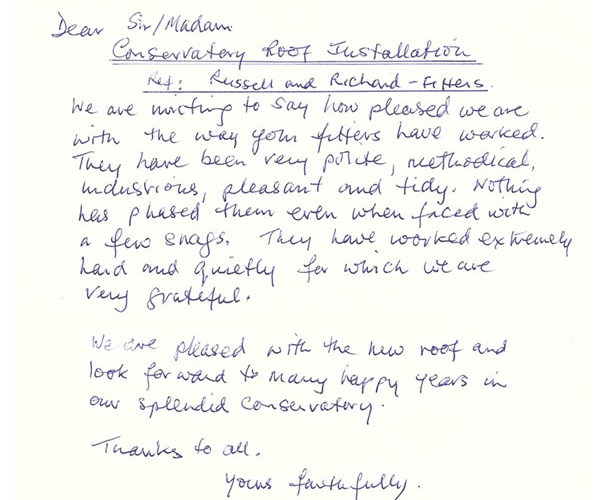 Dear Sir/Madam
Conservatory Roof Installation
Ref: Russell and Richard - Fitters.
We are writing to say how pleased we are
with the way your fitters have worked.
They have been very polite, methodical,
industrious, pleasant and tidy. Nothing
has phased them even when faced with
a few snags. They have worked extremely
hard and quietly for which we are
very grateful.
We are pleased with the new roof and
look forward to many happy years in
our splendid conservatory.
Thanks to all.
Yours faithfully.